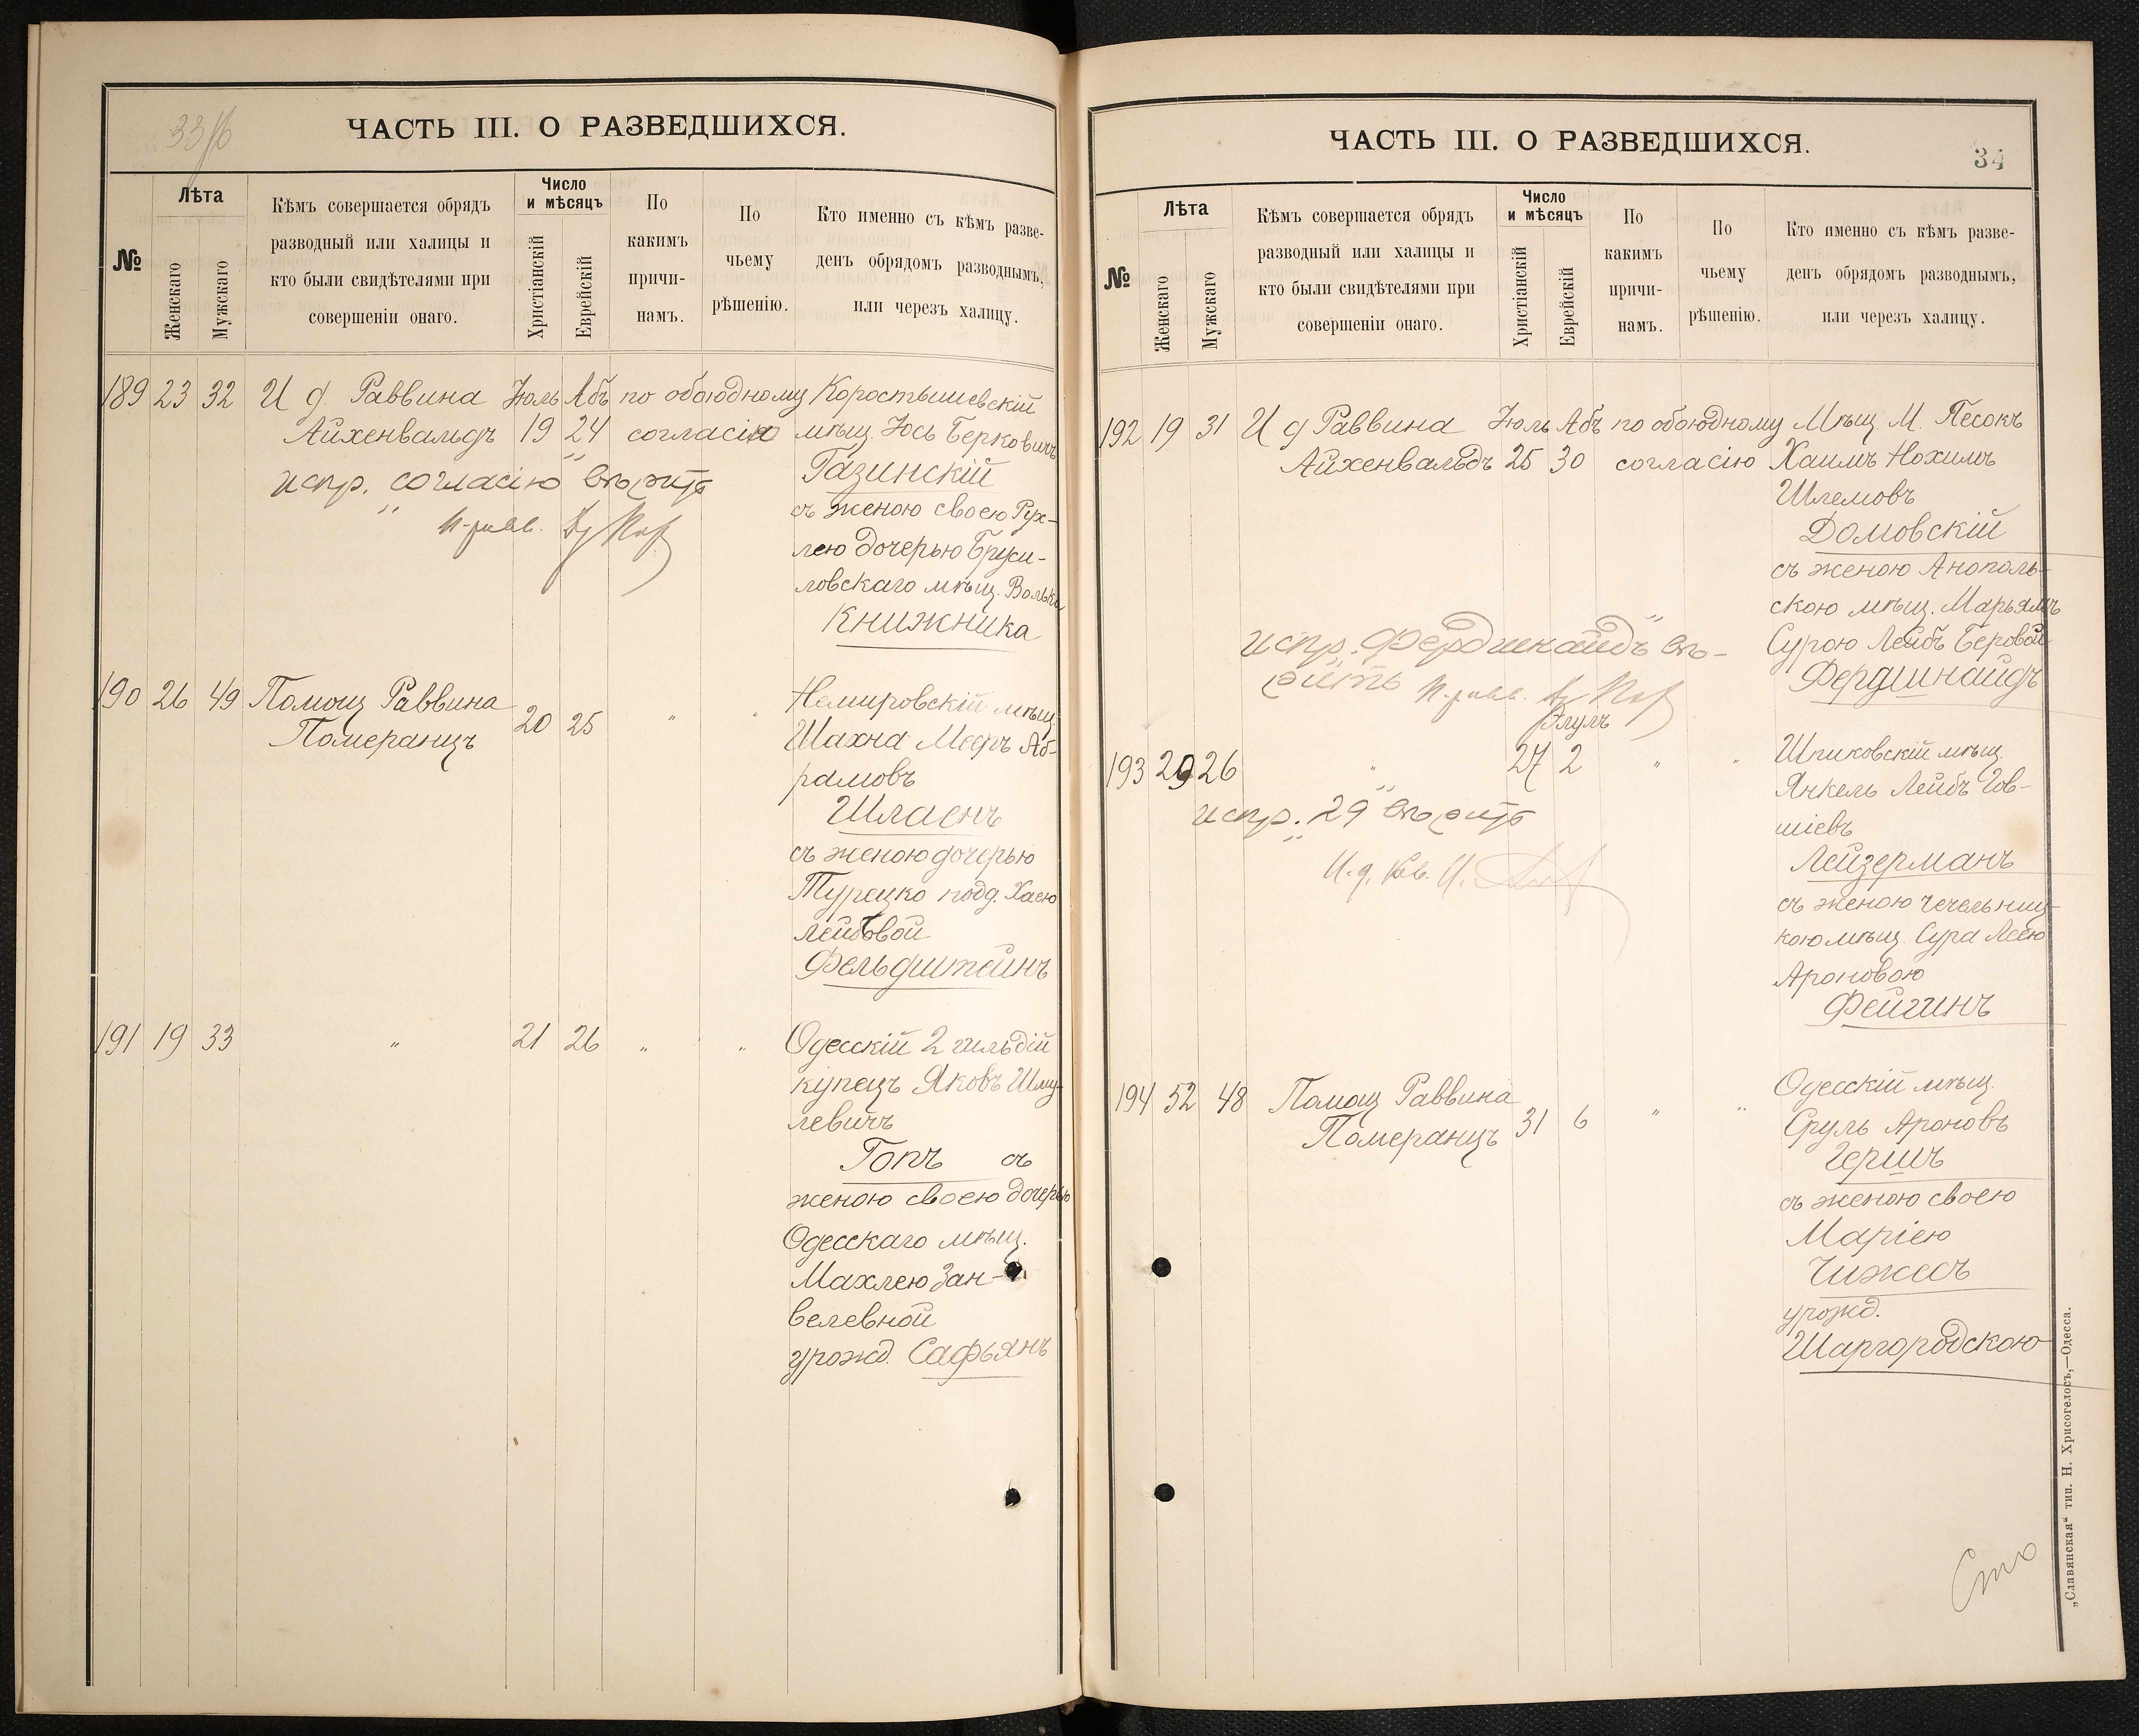 ЧАСТЬ III. О РАЗВЕДШИХСЯ.
№
Лѣта
Женскаго
Мужскаго
Кѣмъ совершается обрядъ
разводный или халицы и
кто были свидѣтелями при
совершеніи онаго.
Число
и мѣсяцъ
Христіанскій
Еврейскій
По
какимъ
причи-
намъ.
По
чьему
рѣшенію.
Кто именно съ кѣмъ разве-
денъ обрядомъ разводнымъ,
или черезъ халицу.
189 23 32 И д. Раввина Июль Абъ по обоюдному Коростышевскій
Айхенвальдъ 19 24 согласію мѣщ. Іось Берковичъ
испр. "согласію" вѣрить Газинскій
съ женою своею Рух-
лею дочерью Бруси-
ловскаго мѣщ. Волька
Книжника
190 26 49 Помощ Раввина 20 25 " " Немировскій мѣщ.
Померанцъ Шахна Мееръ Аб-
рамовъ
Шлаенъ
съ женою дочерью
Турецко подд. Хаею
Лейбовой
Фельдштейнъ
191 19 33 " 21 26 " " Одесскій 2 гильдій
купецъ Яковъ Шму-
левичъ
Гопъ съ
женою своею дочерью
Одесскаго мѣщ.
Махлею Зан-
велевной
урожд. Сафьянъ
ЧАСТЬ III. О РАЗВЕДШИХСЯ.
34
№
Лѣта
Женскаго
Мужскаго
Кѣмъ совершается обрядъ
разводный или халицы и
кто были свидѣтелями при
совершеніи онаго.
Число
и мѣсяцъ
Христіанскій
Еврейскій
По
какимъ
причи-
намъ.
По
чьему
рѣшенію.
Кто именно съ кѣмъ разве-
денъ обрядомъ разводнымъ,
или черезъ халицу.
192 19 31 И д Раввина Июль Абъ по обоюдному Мѣщ. М. Песокъ
Айхенвальдъ 25 30 согласію Хаимъ Нохимъ
Шлемовъ
Домовскій
съ женою Анополь-
скою мѣщ. Марьямъ
испр. Фердинайдъ" вѣ- Сурою Лейбъ Беровой
рить Фердинайдъ
Элулъ
193 29 26 " 27 2 " " Шпиковскій мѣщ.
Янкель Лейбъ Гов-
испр. "29" вѣрить шіевъ
Лейзерманъ
съ женою Чечельниц-
кою мѣщ. Сура Леею
Ароновою
Фейгинъ
194 52 48 Помощ Раввина 31 6 " " Одесскій мѣщ.
Померанцъ Сруль Ароновъ
Гершъ
съ женою своею
Маріею
Чижесъ
урожд.
Шаргородскою
Сто
„Славянская“ тип. Н. Хрисогелосъ,—Одесса.